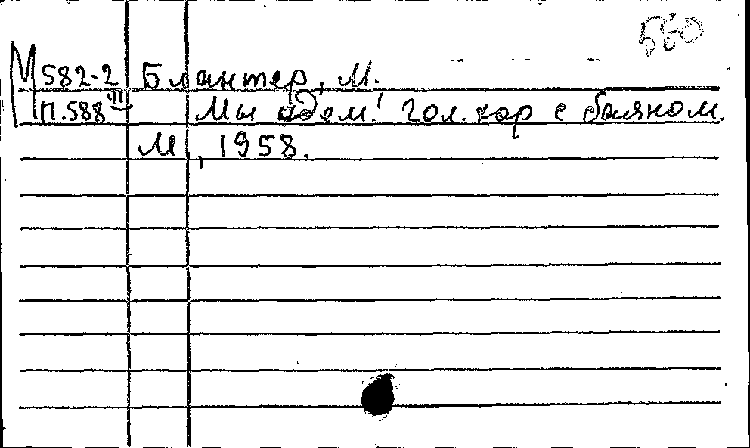 560
М 582-2 Блантер, М.
П.588 VII Мы идем! Гол. хор с баяном.
М, 1958.